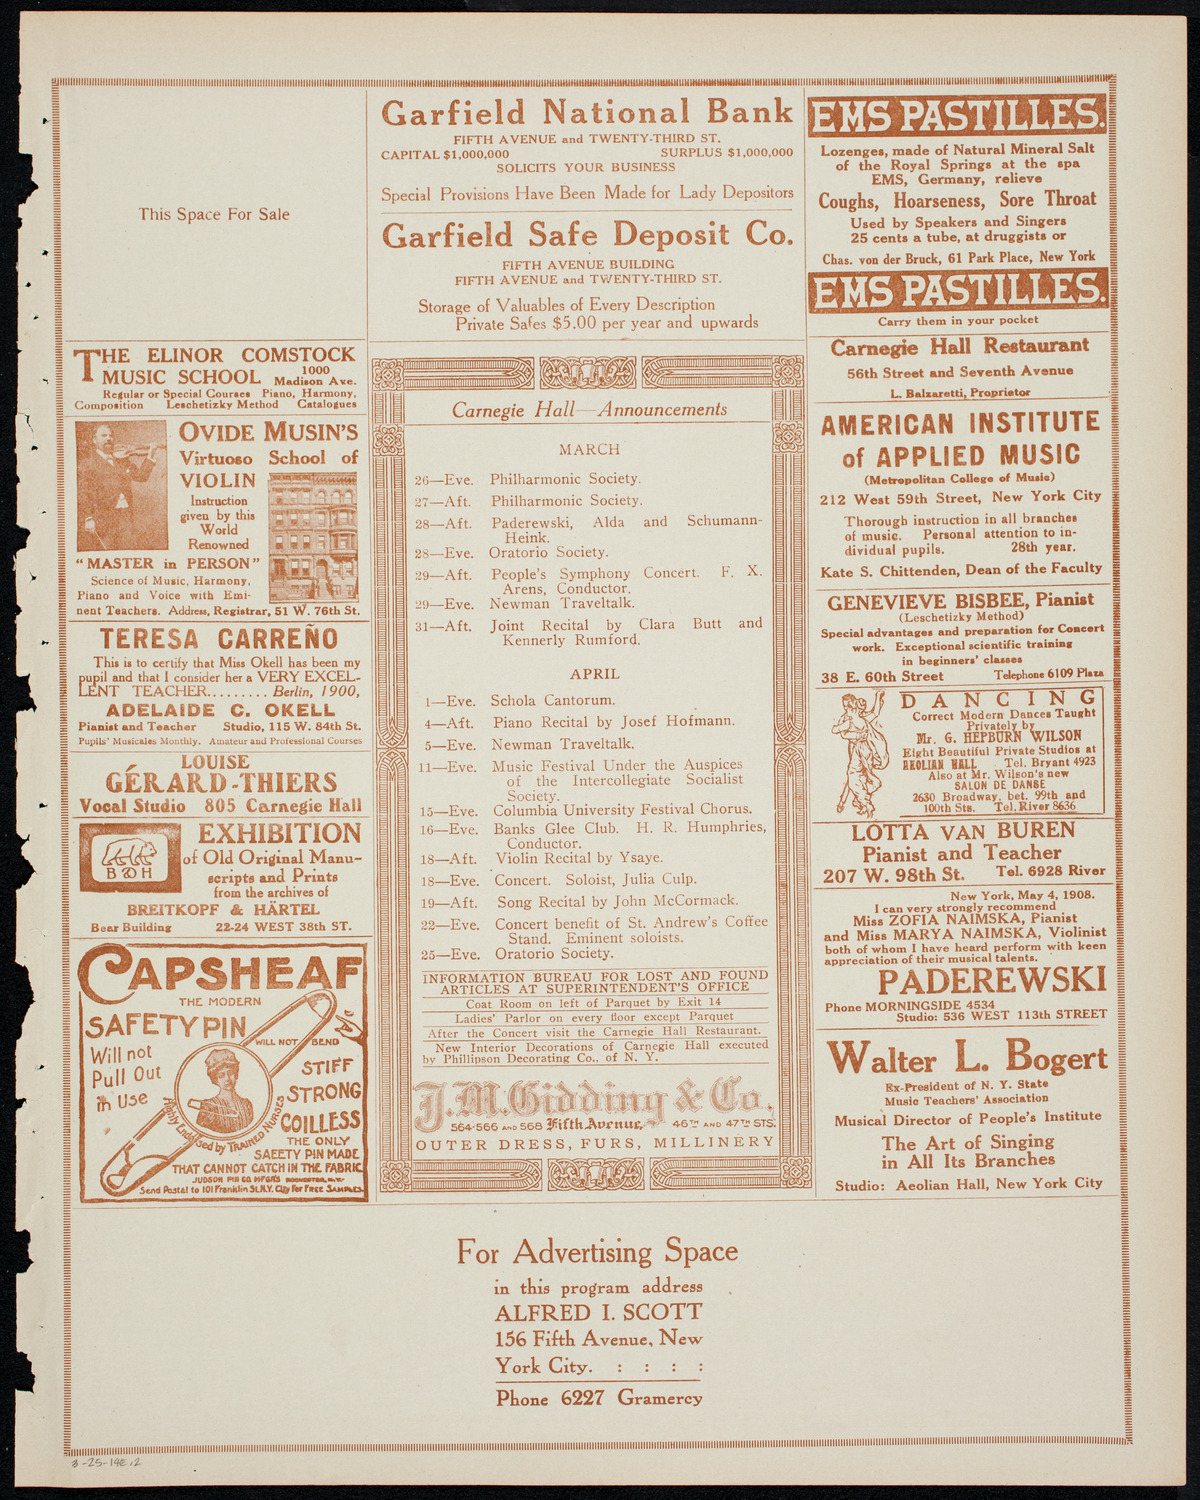 This Space For Sale
Garfield National Bank
FIFTH AVENUE and TWENTY-THIRD ST.
CAPITAL $1,000,000 SURPLUS $1,000,000
SOLICITS YOUR BUSINESS
Special Provisions Have Been Made for Lady Depositors
Garfield Safe Deposit Co.
FIFTH AVENUE BUILDING
FIFTH AVENUE and TWENTY-THIRD ST.
Storage of Valuables of Every Description
Private Safes $5.00 per year and upwards
EMS PASTILLES.
Lozenges, made of Natural Mineral Salt
of the Royal Springs at the spa
EMS, Germany, relieve
Coughs, Hoarseness, Sore Throat
Used by Speakers and Singers
25 cents a tube, at druggists or
Chas. von der Bruck, 61 Park Place, New York
EMS PASTILLES.
Carry them in your pocket
THE ELINOR COMSTOCK
MUSIC SCHOOL 1000
Madison Ave.
Regular or Special Courses Piano, Harmony,
Composition Leschetizky Method Catalogues
OVIDE MUSIN'S
Virtuoso School of
VIOLIN
Instruction
given by this
World
Renowned
"MASTER in PERSON"
Science of Music, Harmony,
Piano and Voice with Emi-
nent Teachers. Address, Registrar, 51 W. 76th St.
TERESA CARREÑO
This is to certify that Miss Okell has been my
pupil and that I consider her a VERY EXCEL-
LENT TEACHER......... Berlin, 1900,
ADELAIDE C. OKELL
Pianist and Teacher Studio, 115 W. 84th St.
Pupils' Musicales Monthly. Amateur and Professional Courses
LOUISE
GÉRARD-THIERS
Vocal Studio 805 Carnegie Hall
B & H
EXHIBITION
of Old Original Manu-
scripts and Prints
from the archives of
BREITKOPF & HÄRTEL
Bear Building 22-24 WEST 38th ST.
CAPSHEAF
THE MODERN
SAFETY PIN
WILL NOT BEND
Will not
Pull Out
in Use
STIFF
STRONG
COILLESS
Highly Endorsed by TRAINED NURSES
THE ONLY
SAFETY PIN MADE
THAT CANNOT CATCH IN THE FABRIC.
JUDSON PIN CO. MFGRS ROCHESTER, N.Y.
Send Postal to 101 Franklin St. N.Y. City For FREE SAMPLES.
Carnegie Hall—Announcements
MARCH
26—Eve. Philharmonic Society.
27—Aft. Philharmonic Society.
28—Aft. Paderewski, Alda and Schumann-
Heink.
28—Eve. Oratorio Society.
29—Aft. People's Symphony Concert. F. X.
Arens, Conductor.
29—Eve. Newman Traveltalk.
31—Aft. Joint Recital by Clara Butt and
Kennerly Rumford.
APRIL
1—Eve. Schola Cantorum.
4—Aft. Piano Recital by Josef Hofmann.
5—Eve. Newman Traveltalk.
11—Eve. Music Festival Under the Auspices
of the Intercollegiate Socialist
Society.
15—Eve. Columbia University Festival Chorus.
16—Eve. Banks Glee Club. H. R. Humphries,
Conductor.
18—Aft. Violin Recital by Ysaye.
18—Eve. Concert. Soloist, Julia Culp.
19—Aft. Song Recital by John McCormack.
22—Eve. Concert benefit of St. Andrew's Coffee
Stand. Eminent soloists.
25—Eve. Oratorio Society.
INFORMATION BUREAU FOR LOST AND FOUND
ARTICLES AT SUPERINTENDENT'S OFFICE
Coat Room on left of Parquet by Exit 14
Ladies' Parlor on every floor except Parquet
After the Concert visit the Carnegie Hall Restaurant.
New Interior Decorations of Carnegie Hall executed
by Phillipson Decorating Co., of N. Y.
J. M. Gidding & Co.
564-566 AND 568 Fifth Avenue, 46TH AND 47TH STS.
OUTER DRESS, FURS, MILLINERY
Carnegie Hall Restaurant
56th Street and Seventh Avenue
L. Balzaretti, Proprietor
AMERICAN INSTITUTE
of APPLIED MUSIC
(Metropolitan College of Music)
212 West 59th Street, New York City
Thorough instruction in all branches
of music. Personal attention to in-
dividual pupils. 28th year.
Kate S. Chittenden, Dean of the Faculty
GENEVIEVE BISBEE, Pianist
(Leschetizky Method)
Special advantages and preparation for Concert
work. Exceptional scientific training
in beginners' classes
38 E. 60th Street Telephone 6109 Plaza
DANCING
Correct Modern Dances Taught
Privately by
Mr. G. HEPBURN WILSON
Eight Beautiful Private Studios at
AEOLIAN HALL Tel. Bryant 4923
Also at Mr. Wilson's new
SALON DE DANSE
2630 Broadway, bet. 99th and
100th Sts. Tel. River 8636
LOTTA VAN BUREN
Pianist and Teacher
207 W. 98th St. Tel. 6928 River
New York, May 4, 1908.
I can very strongly recommend
Miss ZOFIA NAIMSKA, Pianist
and Miss MARYA NAIMSKA, Violinist
both of whom I have heard perform with keen
appreciation of their musical talents.
PADEREWSKI
Phone MORNINGSIDE 4534
Studio: 536 WEST 113th STREET
Walter L. Bogert
Ex-President of N. Y. State
Music Teachers' Association
Musical Director of People's Institute
The Art of Singing
in All Its Branches
Studio: Aeolian Hall, New York City
For Advertising Space
in this program address
ALFRED I. SCOTT
156 Fifth Avenue, New
York City. : : : :
Phone 6227 Gramercy
3-25-14E.2